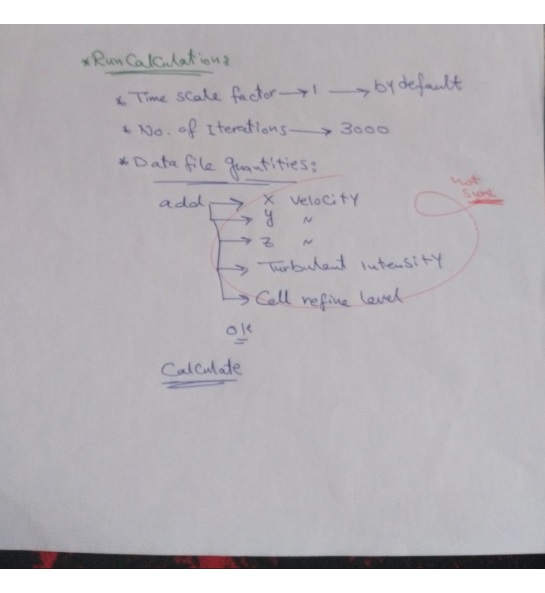 * Run Calculation:
* Time scale factor → 1 → by default
* No. of Iterations → 3000
* Data file quantities:
add → X velocity
→ y ~
→ z ~
→ Turbulent intensity
→ Cell refine level
not
sure
ok
Calculate